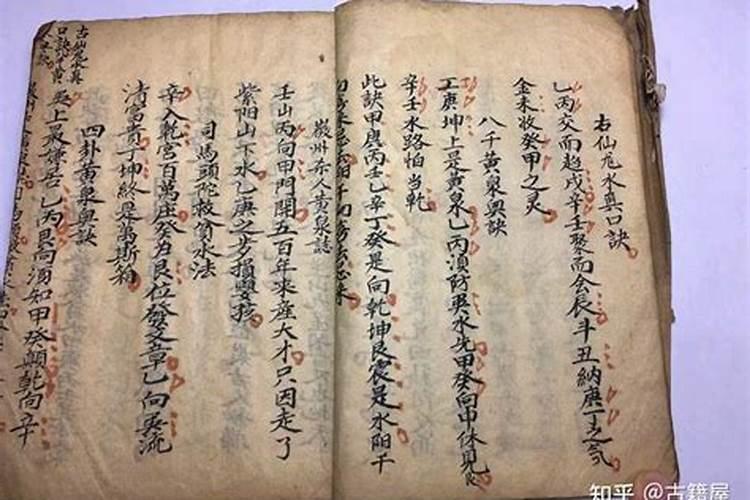 古仙尨水真口訣
乙丙交而趋戌辛壬聚而会辰斗丑納庚丁之氣
金未收癸甲之灵
八千黄泉奥訣
工庚坤上是黄泉乙丙湏防巽水先甲癸向中休見艮
辛壬水路怕当乾
此訣甲庚丙壬乙辛丁癸是向乾坤艮巽是水阳千
徽州杏人黄泉誌
壬山丙向甲門開五百年来産大才只因走了
紫阳山下水乙庚之歩損嬰孩
司馬頭陀救貧水法
辛入乾宮百萬庄癸为艮位發文章乙向巽流
清富貴丁坤終是萬斯箱
四卦黄泉奥訣
上最嫌居乙丙艮向湏知甲癸顛乾向辛千
古仙尨水真
口訣
知乎 @古籍屋